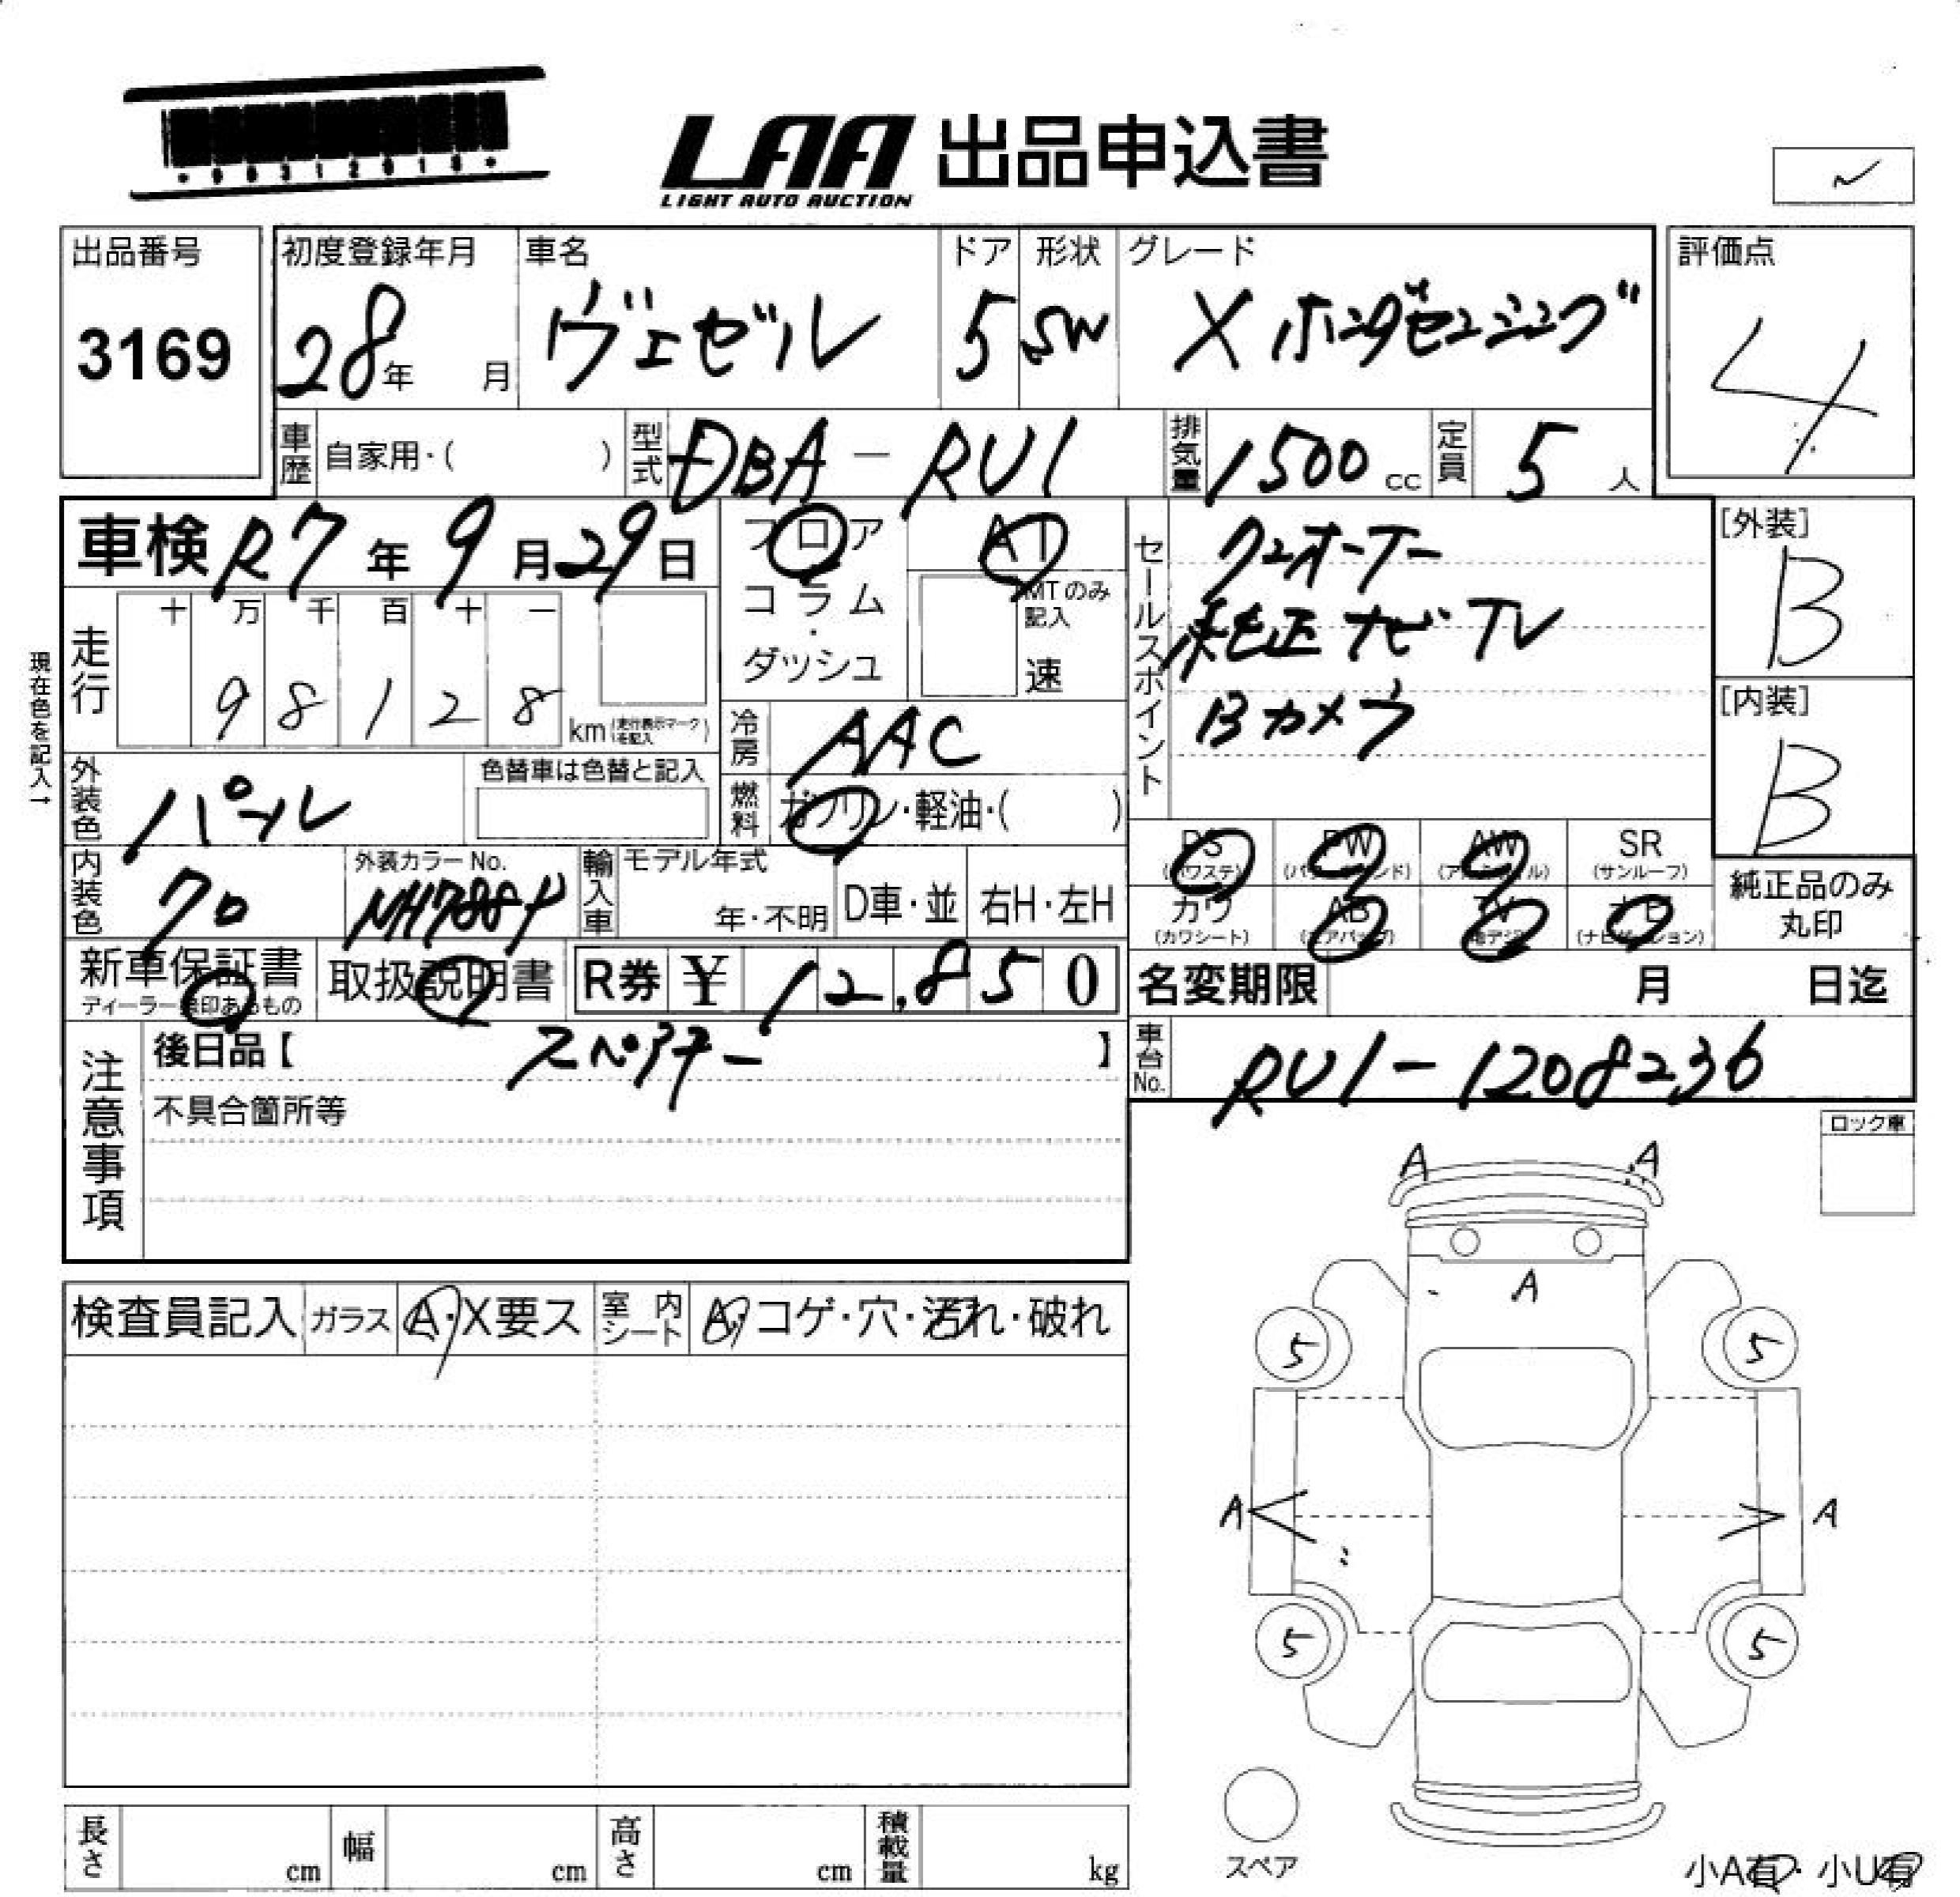 LAA 出品申込書
LIGHT AUTO AUCTION
出品番号 初度登録年月 車名 ドア 形状 グレード 評価点
3169 28年 月 ヴェゼル 5 SW X ホンダセンシング 4
車歴 自家用・( ) 型式 DBA-RU1 排気量 1500cc 定員 5人
車検 R7年9月29日 フロア AT セールスポイント ワンオーナー [外装]
コラム・ MTのみ記入 純正ナビTV B
走行 十 万 千 百 十 一 ダッシュ 速 Bカメラ [内装]
98128 km (走行表示マークを記入) B
現在色を記入→
冷房 AAC
外装色 パール 色替車は色替と記入 燃料 ガソリン・軽油・( )
PS (パワステ) PW (パワーウィンド) AW (アルミホイル) SR (サンルーフ)
内装色 クロ 外装カラーNo. NH788P 輸入車 モデル年式 年・不明 D車・並 右H・左H
カワ (カワシート) AB (エアバッグ) TV (地デジ) ナビ (ナビゲーション) 純正品のみ丸印
新車保証書 ディーラー無印あるもの 取扱説明書 R券 ¥12,850 名変期限 月 日迄
注意事項 後日品【 スペアキー 】 車台No. RU1-1208236
不具合箇所等
ロック車
A A
検査員記入 ガラス A・X要ス 室内シート A・コゲ・穴・汚れ・破れ
A
5 5
A A
5 5
スペア
長さ cm 幅 cm 高さ cm 積載量 kg
小A有・小U有